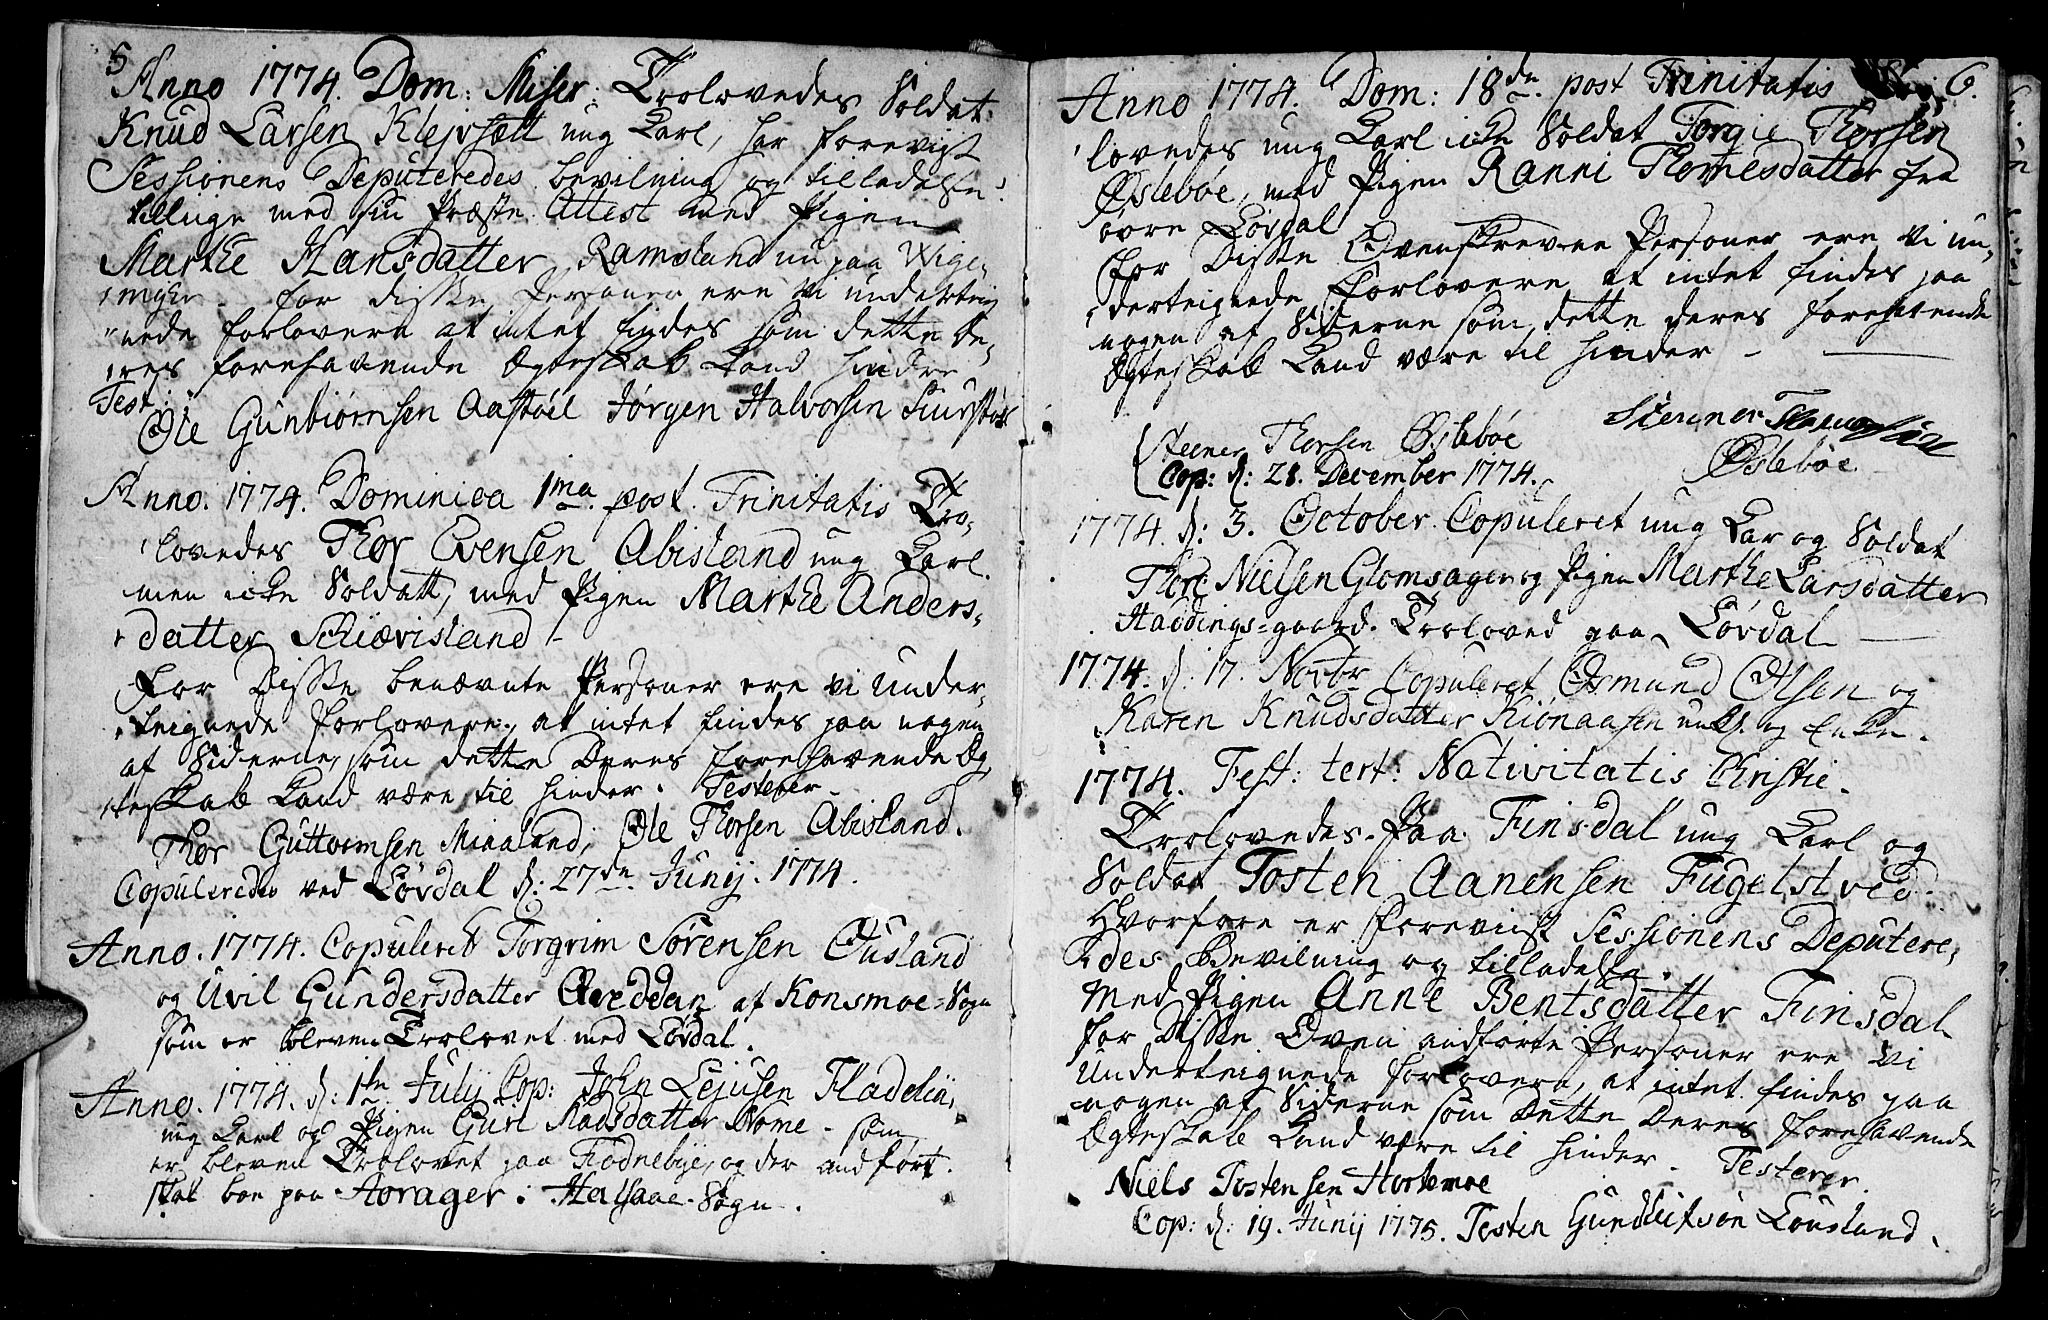 5
Anno 1774. Dom: Miser: Troloved​es Soldat
Knud Larsen Klepsætt ung Karl, har forevist
Sessionens Deputeredes bevilning og tilladelse
tillige med sin Præste Attest med Pigen
Marthe Hansdatter Ramsland nu paa
for disse Personer ere vi underteig
nede forlovere at intet findes som dette de-
eres forehavende Ægteskab kand hindre
Test:
Ole Gunbiørnsen Aastøel Jørgen Halvorsen
Anno. 1774. Dominica 1ma post Trinitatis Tro-
lovedes Thor Evensen Abisland ung Karl
men icke Soldatt, med Pigen Marthe Anders-
datter Schiævisland
For Disse benævnte Personer ere vi under-
teignede forlovere, at intet findes paa nogen
af Siderne, som dette Deres forehavende Æg-
teskab kand være til hinder. Testerer
Thor Guttormsen Mieland, Ole Thorsen Abisland.
Copuleredes ved Løvdal d: 27de Junij 1774.
Anno. 1774. Copuleret Torgrim Sørensen Øusland
og Uvil Gundersdatter Qveddan af Konsmoe-Sogn
som er bleven Trolovet med Løvdal.
Anno. 1774. d: 1te Julij Cop: John Lejusen Fladelii,
ung Karl og Pigen Guri Madsdatter Nome - som
er bleven Trolovet paa Fiodnebye, og der andført.
skal boe paa Aorager i Halsaae-Sogn.
6.
Anno 1774. Dom: 18de post Trinitatis Tro-
lovedes ung Karl icke Soldat Torgie Thorsen
Øslebøe, med Pigen Ranni Thomesdatter fra
øvre Løvdal
for Disse Ovenskrevne Personer ere vi un-
derteignede Forlovere at intet findes paa
nogen af Siderne som dette deres forehavende
Ægteskab kand være til hinder -
Steener Thorsen Øslebøe
Øslebøe
Cop: d: 28. December 1774.
1774. d: 3. October Copuleret ung Kar og Soldat
Thore Nielsen Glomsager og Pigen Marthe Larsdatter
Haddings-gaard. Troloved paa Løvdal
1774. d: 17. Novbr Copuleret Osmund Olsen og
Karen Knudsdatter Kionaasen og Enke.
1774. Fest: tert: Nativitatis Christie.
Trolovedes paa Finsdal ung Karl og
Soldat Tosten Aanensen Fugelstved
Hvorfore er forevist Sessionens Deputere-
des Bevilning og tilladelse.
Med Pigen Anne Bentsdatter Finsdal
for Disse Oven andførte Personer ere vi
Underteignede forlovere, at intet findes paa
nogen af Siderne som Dette Deres forehavende
Ægteskab kand være til hinder. Testerer.
Niels Tostensen Hortemoe
Cop: d: 19. Junij 1775. Tosten Gunds​ Lousland.